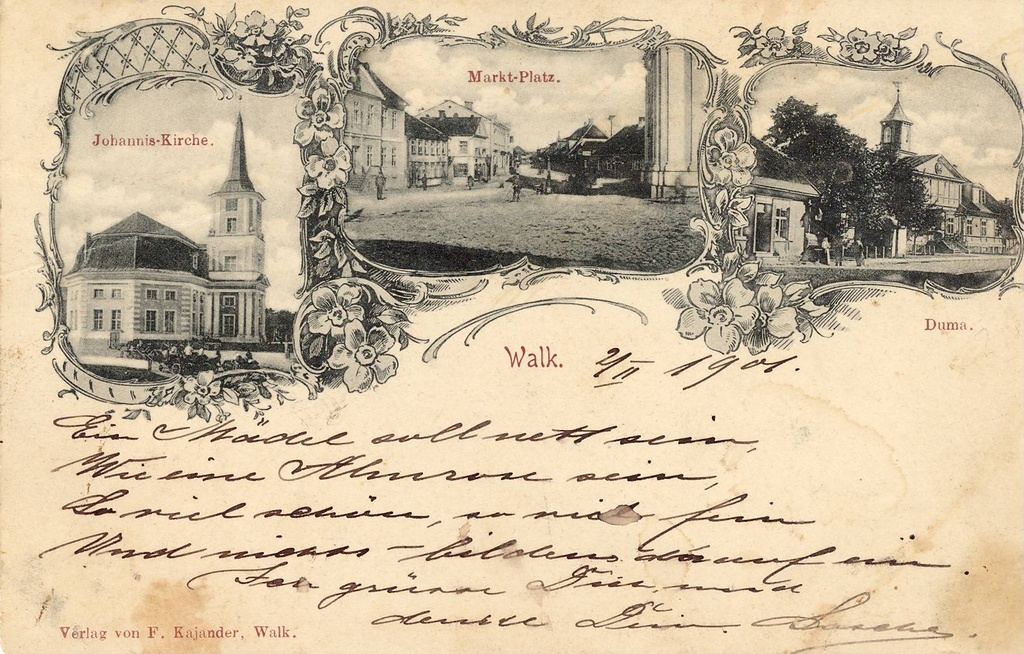 Johannis-Kirche.
Markt-Platz.
Duma.
Walk. 2/II 1901.
Ein Mädel soll nett sein,
Wie eine Almrose sein,
So viel schön, so viel fein
Und nichts - bilden darauf ein.
Ich grüsse Dich und
denke Dein.
Verlag von F. Kajander, Walk.